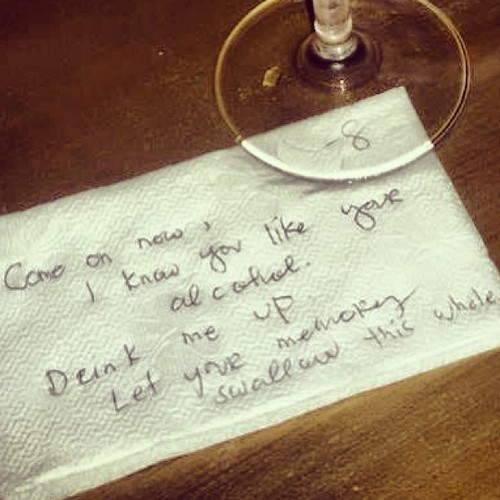 -8
Come on now,
I know you like your
alcohol.
Drink me up
Let your memory
swallow this whole